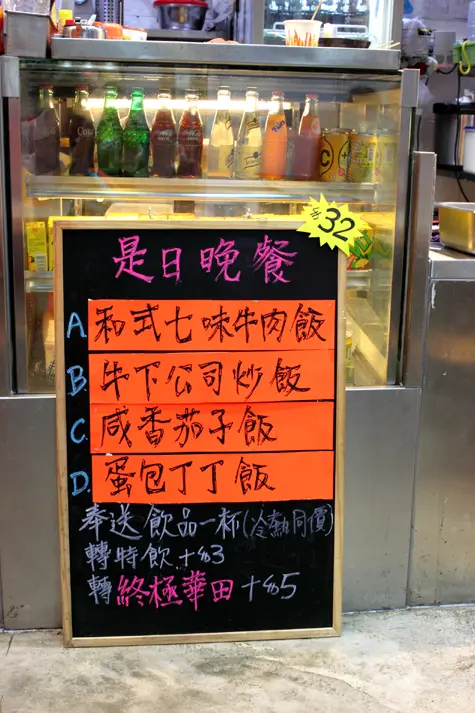 每份32
是日晚餐
A. 和式七味牛肉飯
B. 牛下公司炒飯
C. 咸香茄子飯
D. 蛋包丁丁飯
奉送飲品一杯(冷熱同價)
轉特飲+$3
轉終極華田+$5